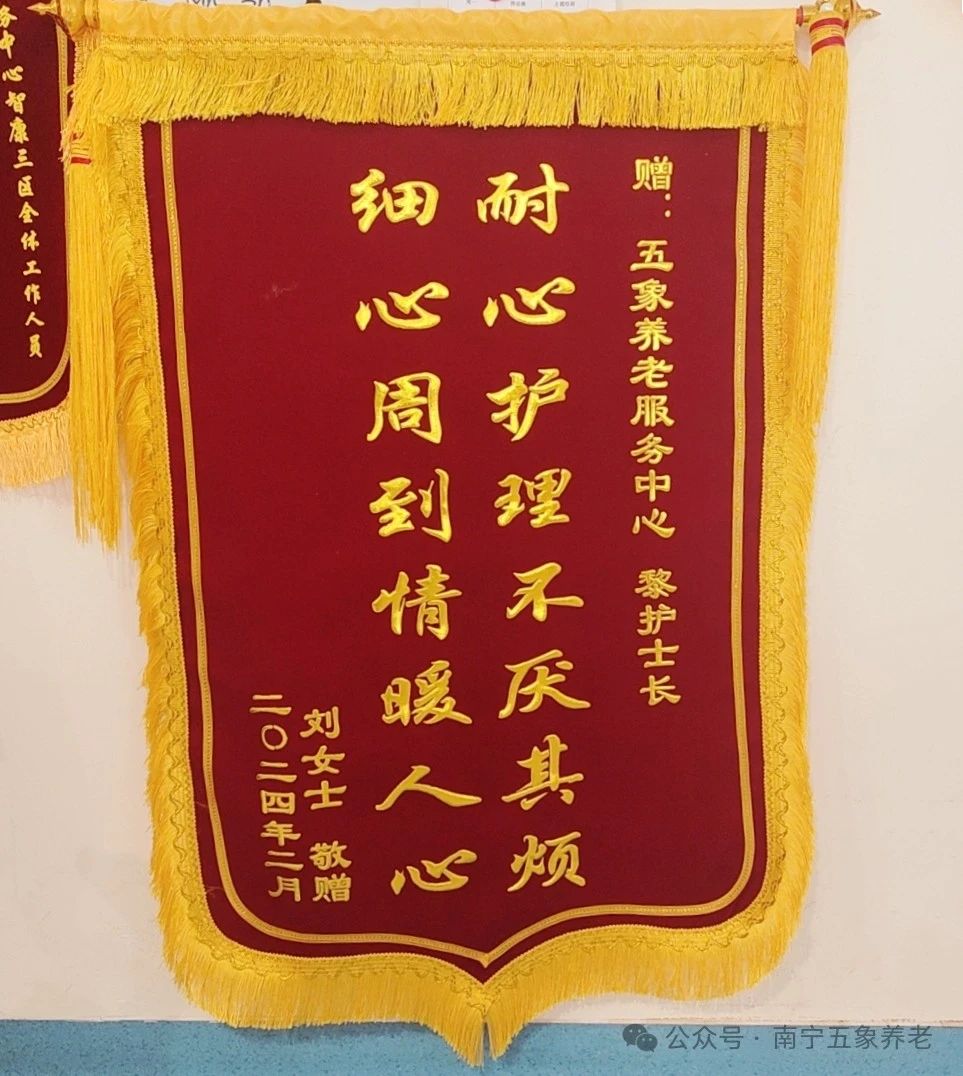 赠：五象养老服务中心 黎护士长
耐心护理不厌其烦
细心周到情暖人心
刘女士 敬赠
二〇二四年二月
务中心智康三区全体工作人员
公众号·南宁五象养老